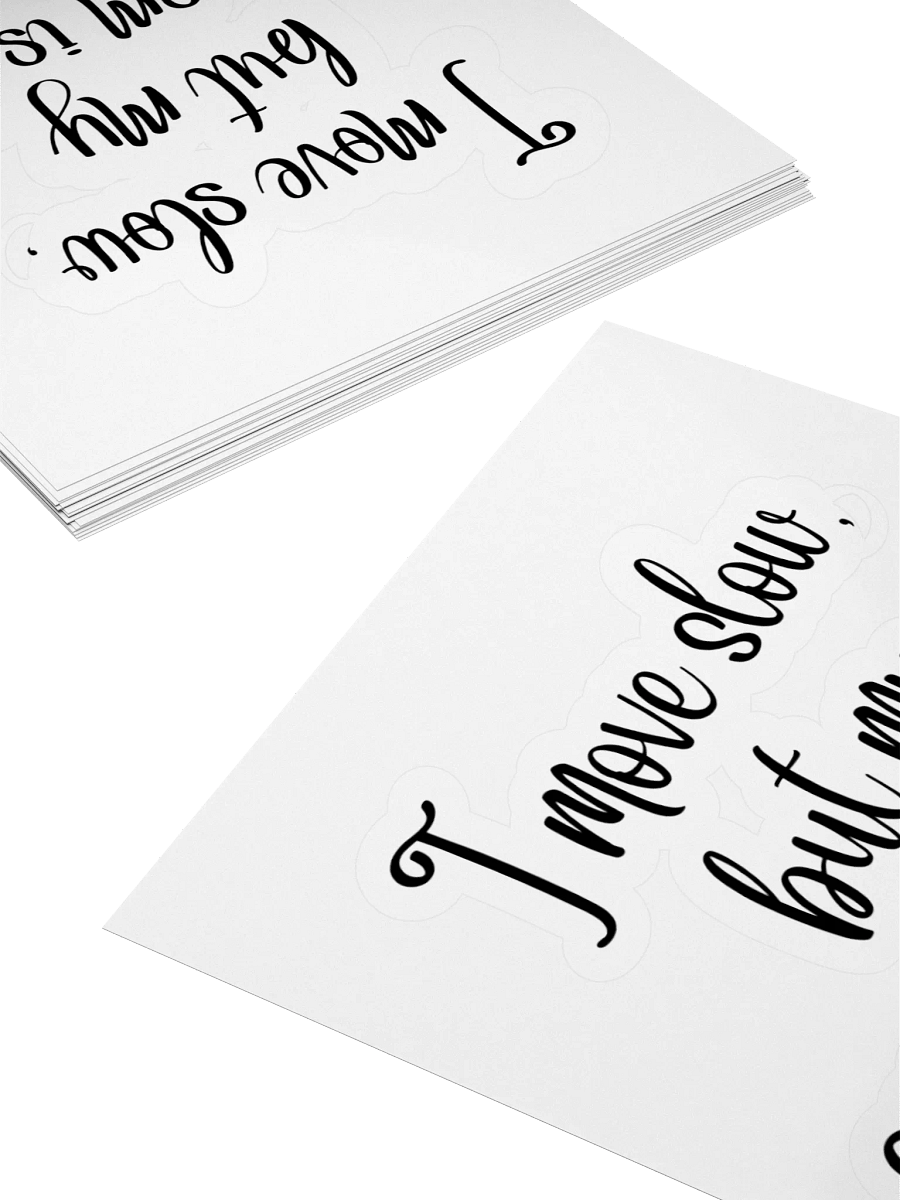 I move slow,
but my
is
I move slow,
but